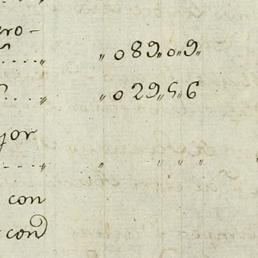 ro-
„ 089„ 0„ 9„
„ 029„ 5„ 6
jor
„ „ „ „
con
con